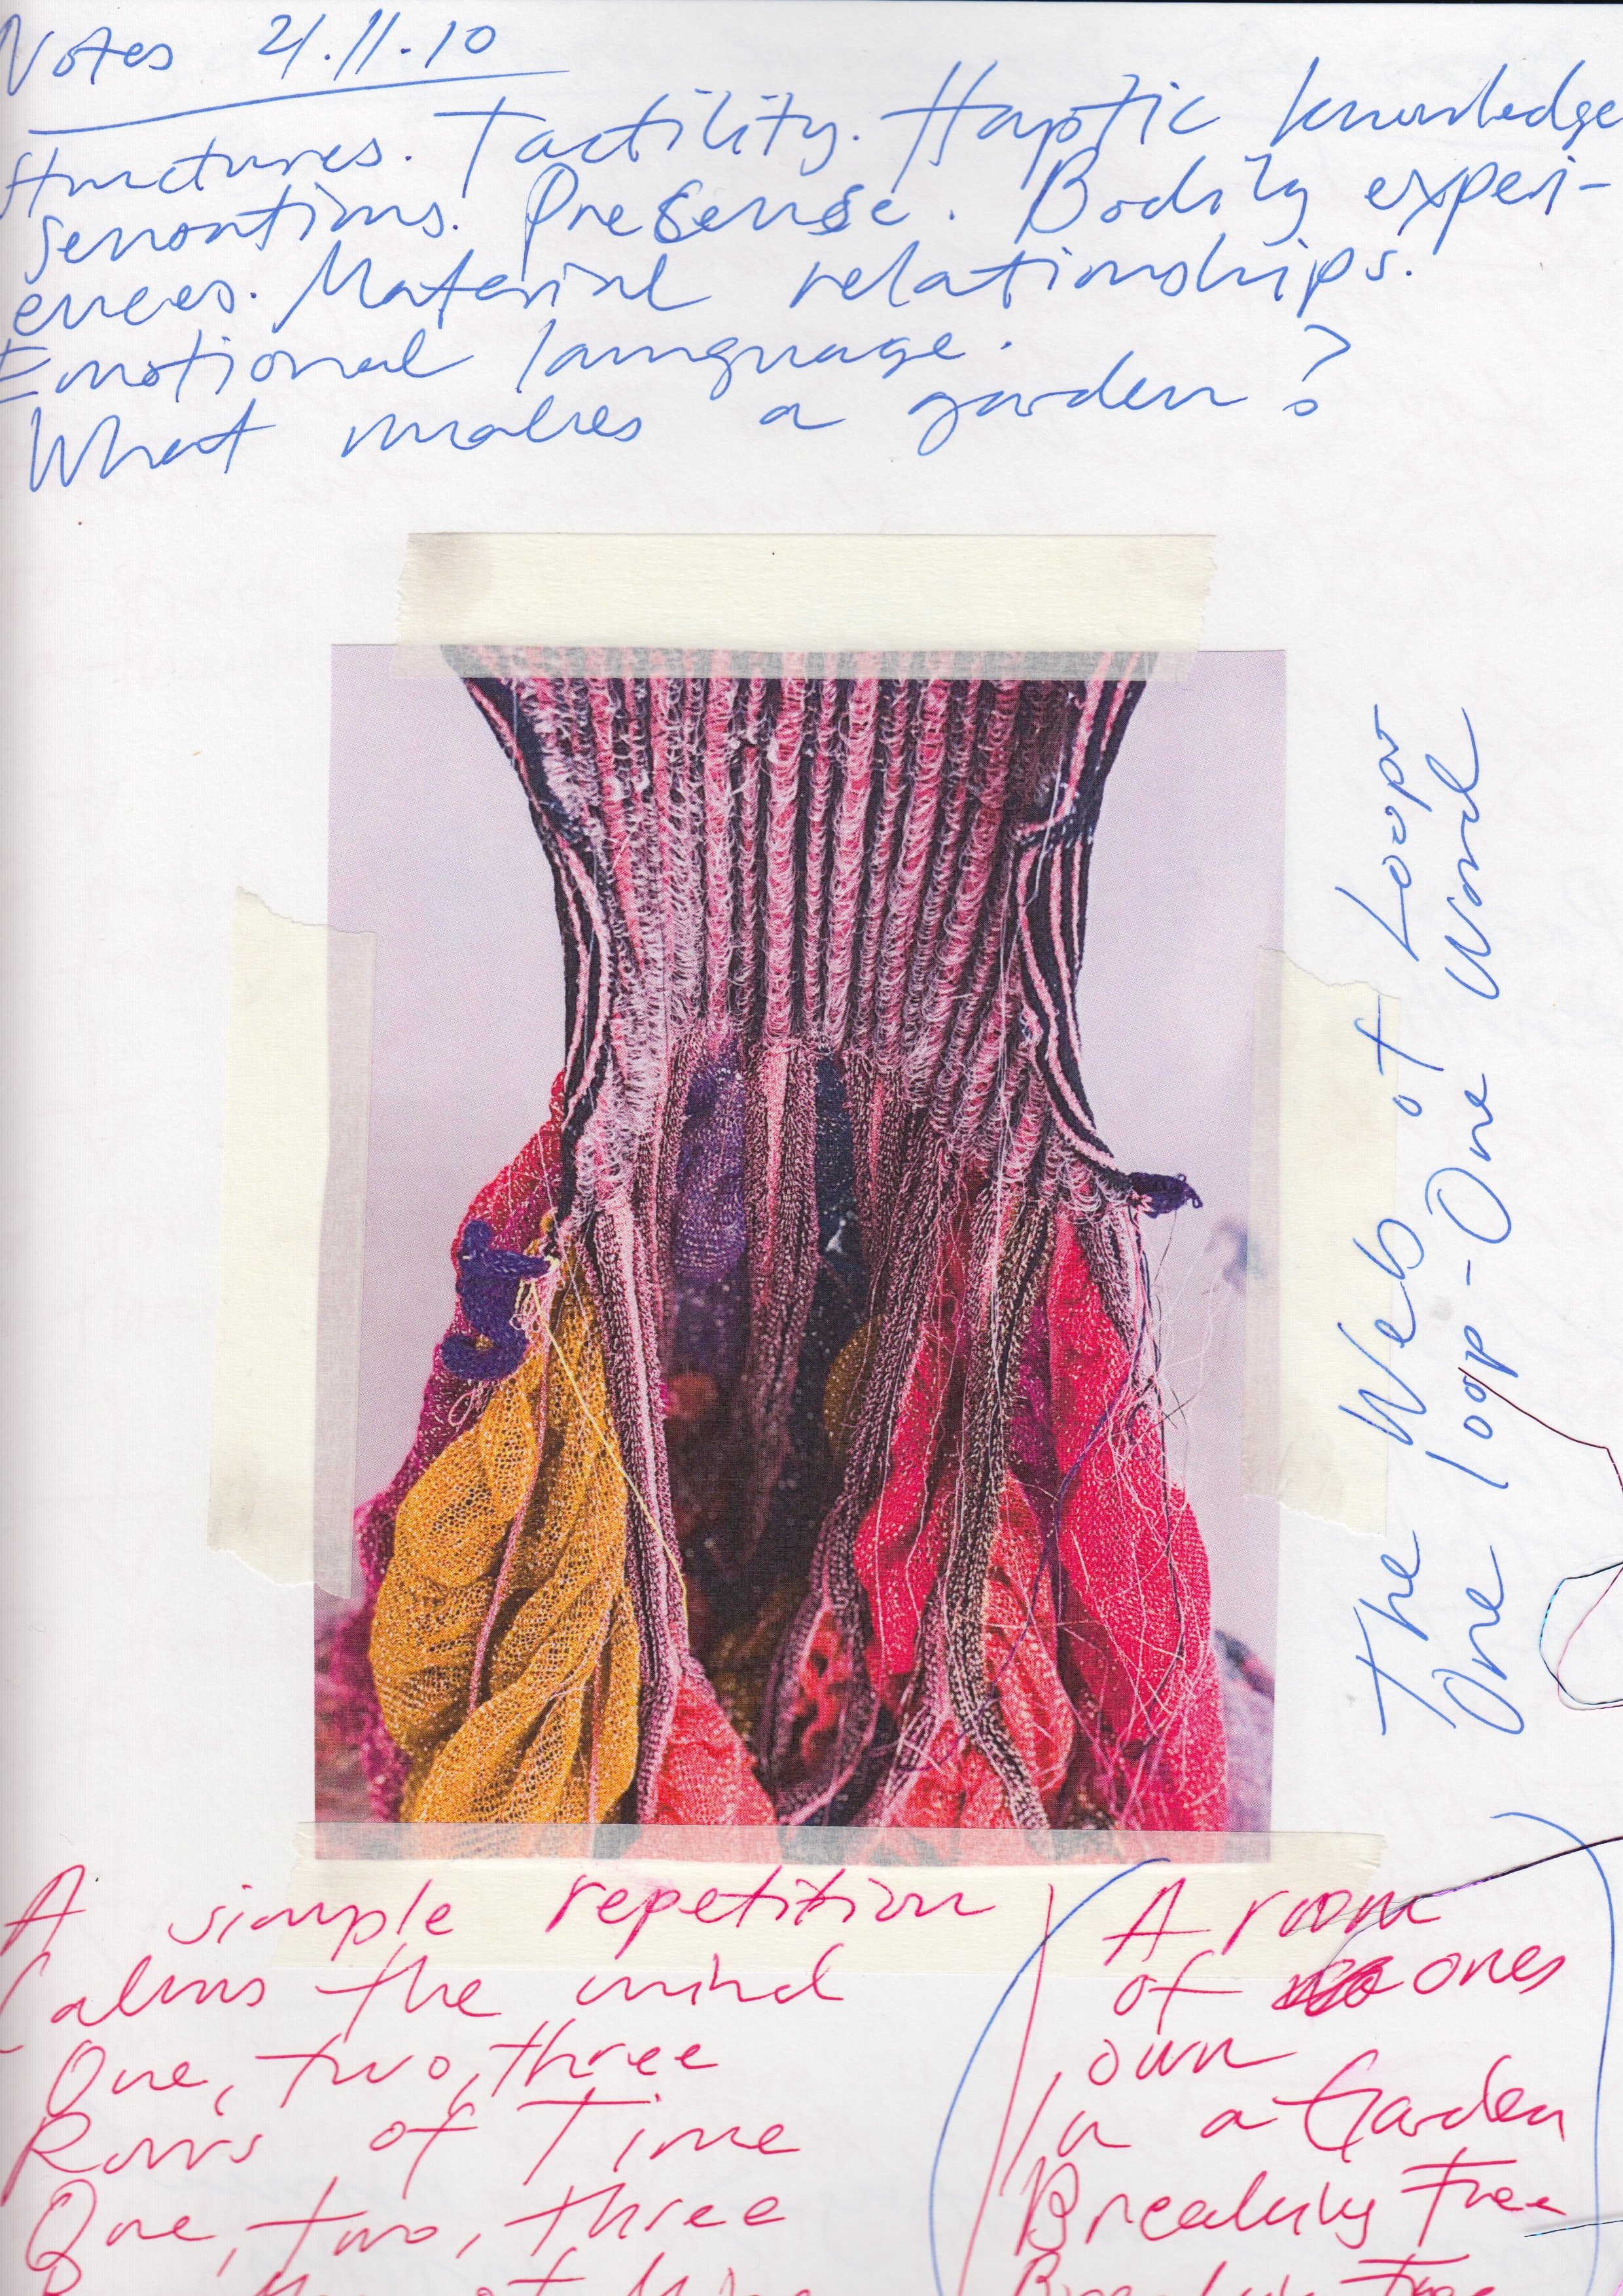 Notes 21.11.10
Structures. Tactility. Haptic knowledge
sensations. Presense. Bodily experi-
ences. Material relationships.
Emotional language.
What makes a garden?
The Web of Loops
One loop - One Word
A simple repetition
Calms the mind
One, two, three
Rows of Time
One, two, three
A room
of ones
own
In a Garden
Breaking Free
Breaking Free